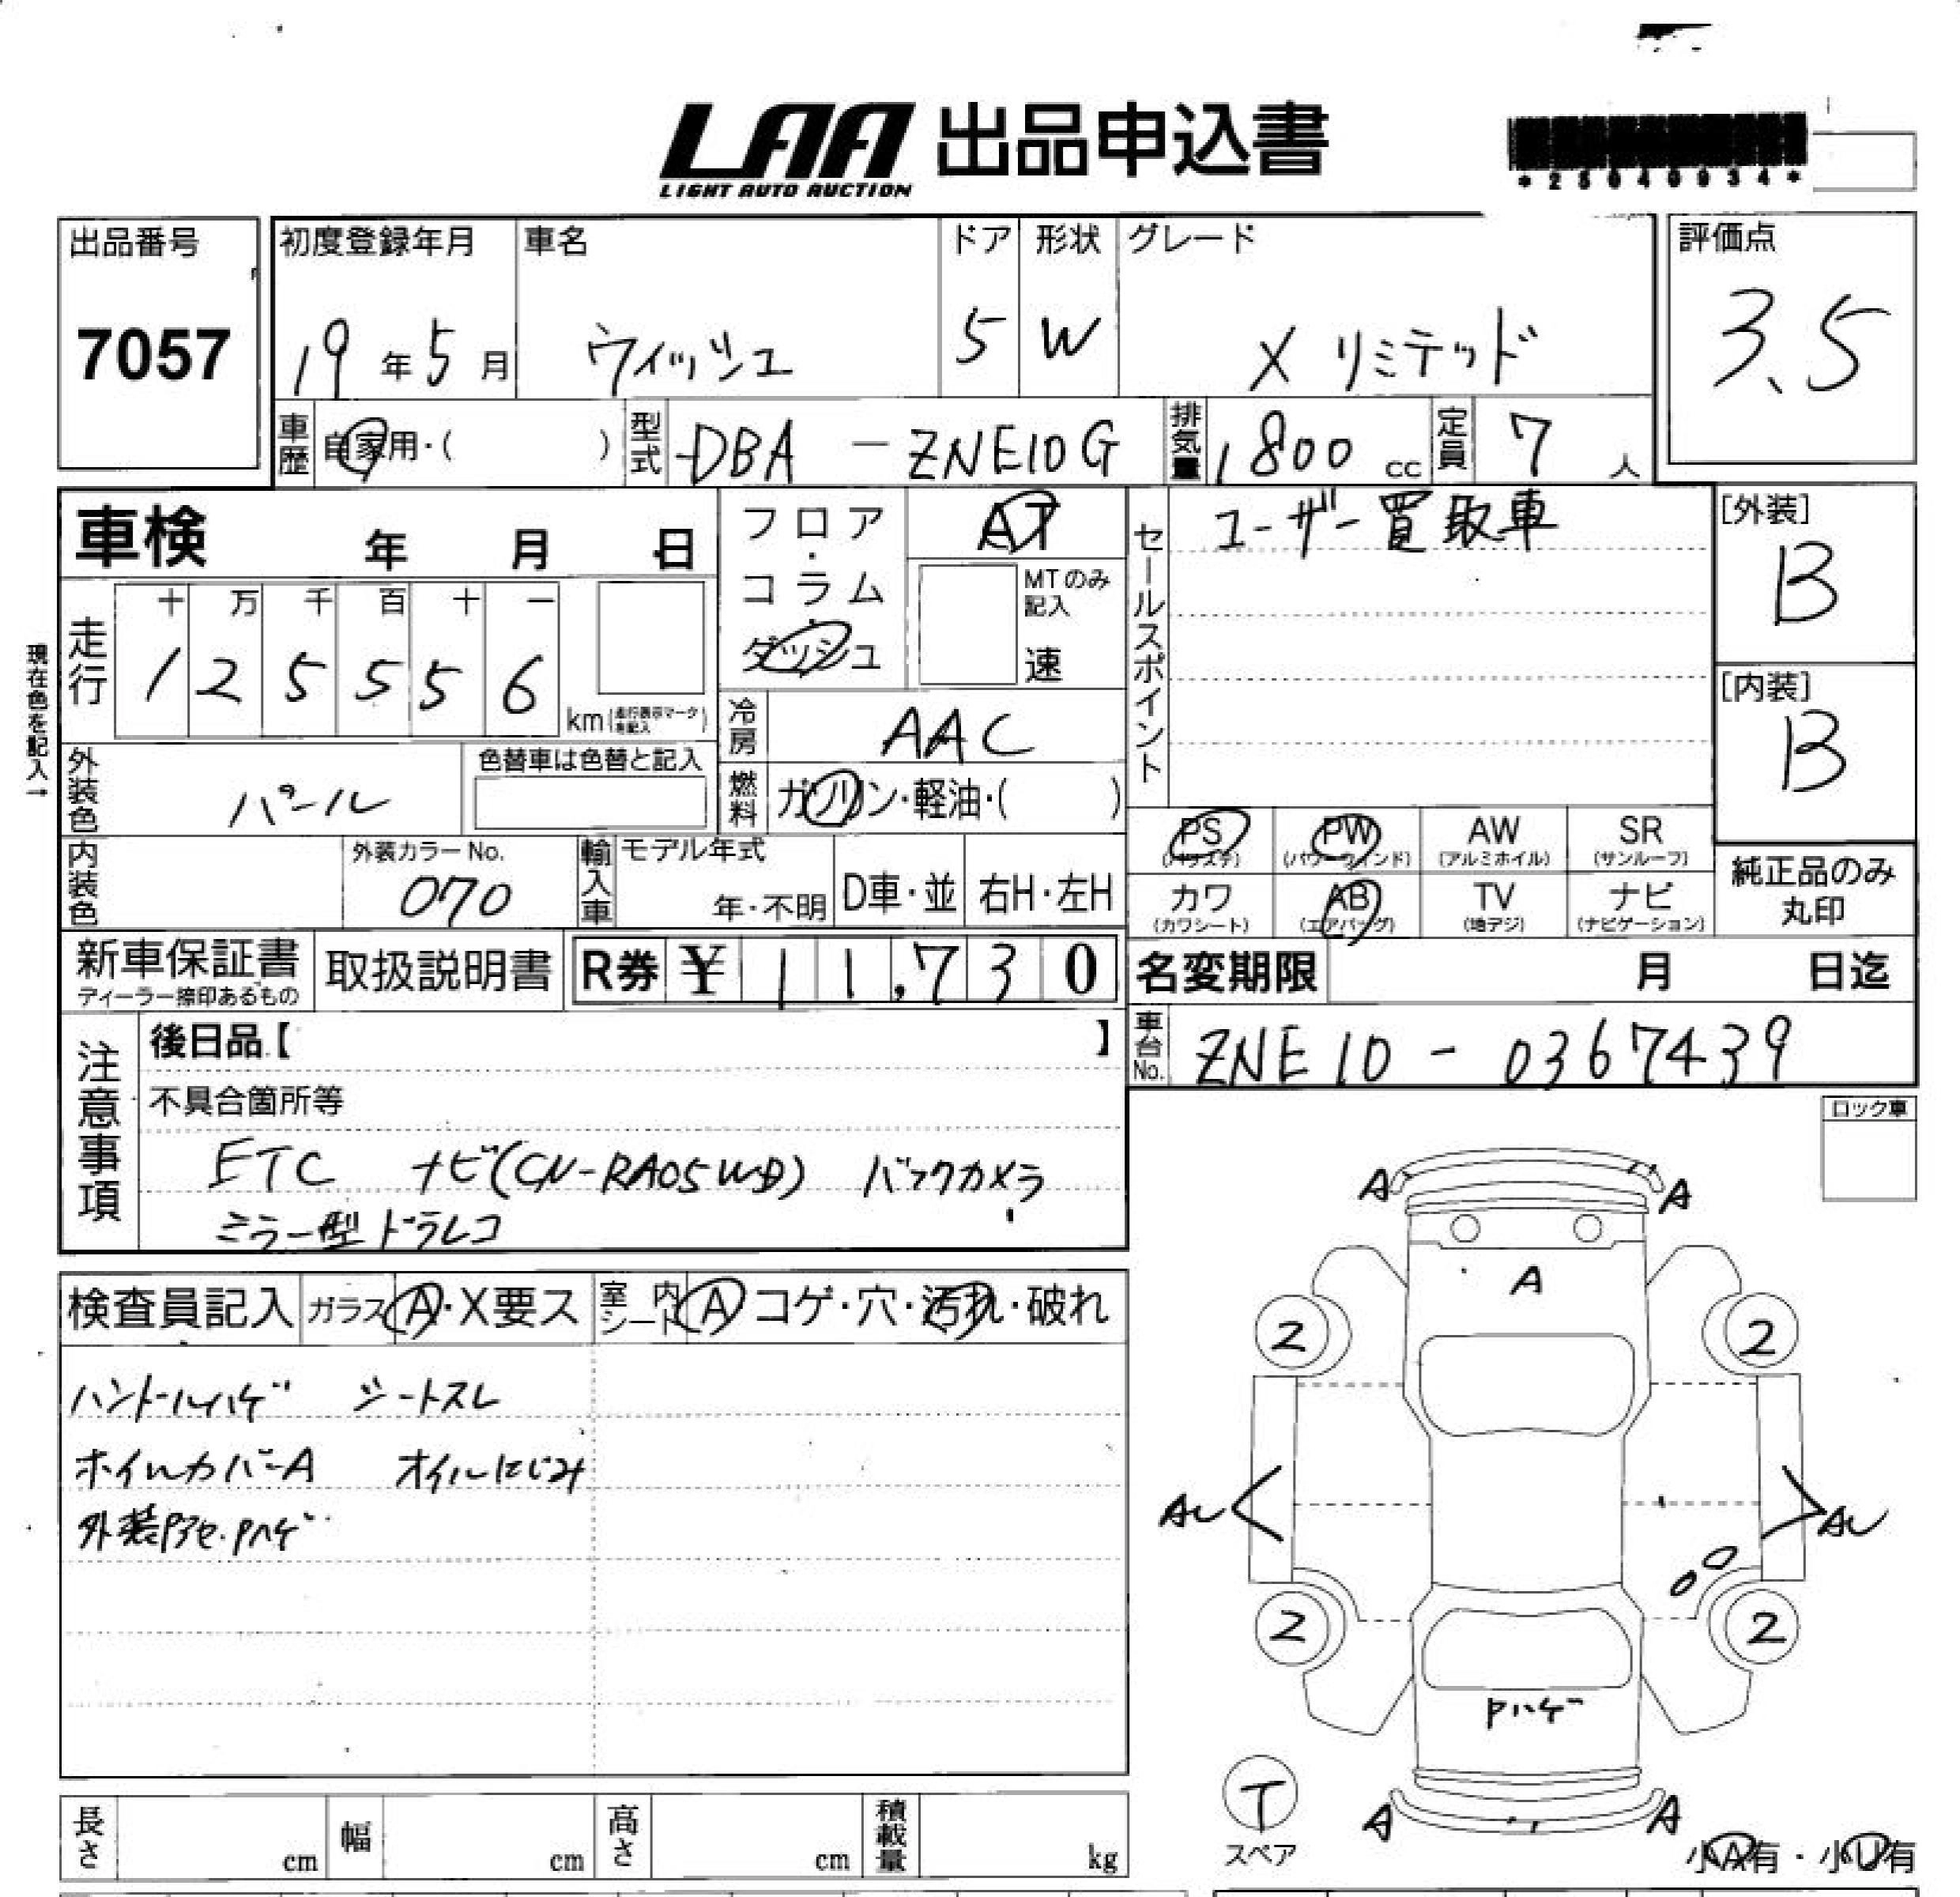 LAA 出品申込書
LIGHT AUTO AUCTION
*25040934*
出品番号
7057
初度登録年月
19年5月
車名
ウィッシュ
ドア
5
形状
W
グレード
X リミテッド
評価点
3.5
車歴
自家用・( )
型式
DBA - ZNE10G
排気量
1800 cc
定員
7 人
車検 年 月 日
現在色を記入→
走行
十 万 千 百 十 一
1 2 5 5 5 6
km(走行表示マークを記入)
フロア・コラム・ダッシュ
AT
MTのみ記入
速
冷房
AAC
燃料
ガソリン・軽油・( )
外装色
パール
色替車は色替と記入
内装色
外装カラーNo.
070
輸入車
モデル年式
年・不明
D車・並
右H・左H
セールスポイント
ユーザー買取車
[外装]
B
[内装]
B
PS
(パワステ)
PW
(パワーウインド)
AW
(アルミホイル)
SR
(サンルーフ)
カワ
(カワシート)
AB
(エアバッグ)
TV
(地デジ)
ナビ
(ナビゲーション)
純正品のみ
丸印
新車保証書
ディーラー捺印あるもの
取扱説明書
R券 ¥ 11,730
名変期限 月 日迄
車台No.
ZNE10-0367439
注意事項
後日品【 】
不具合箇所等
ETC ナビ(CN-RA05WD) バックカメラ
ミラー型ドラレコ
ロック車
検査員記入
ガラス A・X要ス
室内シート A コゲ・穴・汚れ・破れ
ハンドルハゲ シートスレ
ホイルカバーA オイルにじみ
外装Pアセ・Pハゲ
A A
A
2 2
AU AU
2 2
Pハゲ
T
スペア
A A
小A有・小U有
長さ cm
幅 cm
高さ cm
積載量 kg